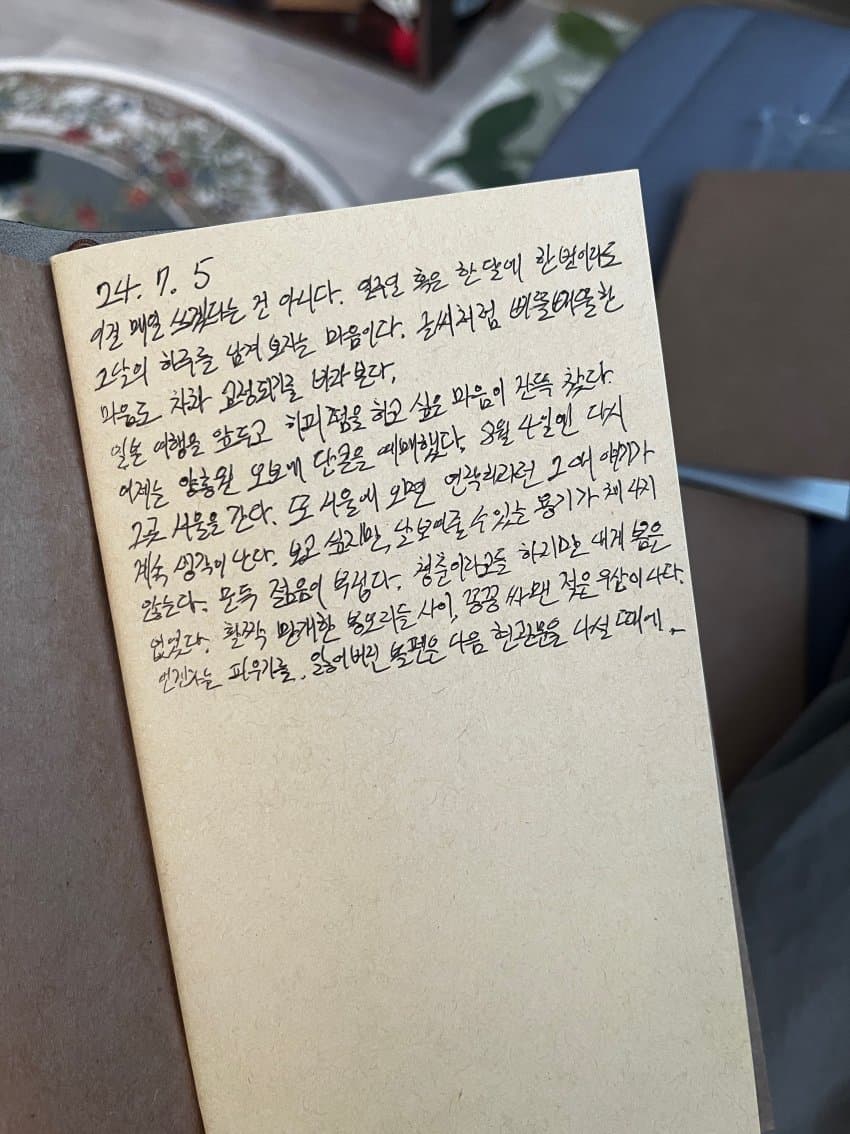 24. 7. 5
이걸 매일 쓰겠다는 건 아니다. 일주일 혹은 한 달에 한 번이라도
그날의 하루를 남겨 보자는 마음이다. 글씨처럼 삐뚤빼뚤한
마음도 차차 교정되기를 바라본다.
일본 여행을 앞두고 히피펌을 하고 싶은 마음이 잔뜩 찼다.
어제는 양홍원 오보에 단콘을 예매했다. 8월 4일엔 다시
그곳 서울을 간다. 또 서울에 오면 연락하라던 그 애 얘기가
계속 생각이 난다. 보고 싶지만, 날 보여줄 수 있는 용기가 채 4지
않는다. 문득 젊음이 무섭다. 청춘이라고들 하지만 내게 봄은
없었다. 활짝 만개한 봉오리들 사이, 꽁꽁 싸맨 젖은 우산이 나다.
언젠가는 피우기를. 잃어버린 볼편은 다음 현관문을 나설 때에.